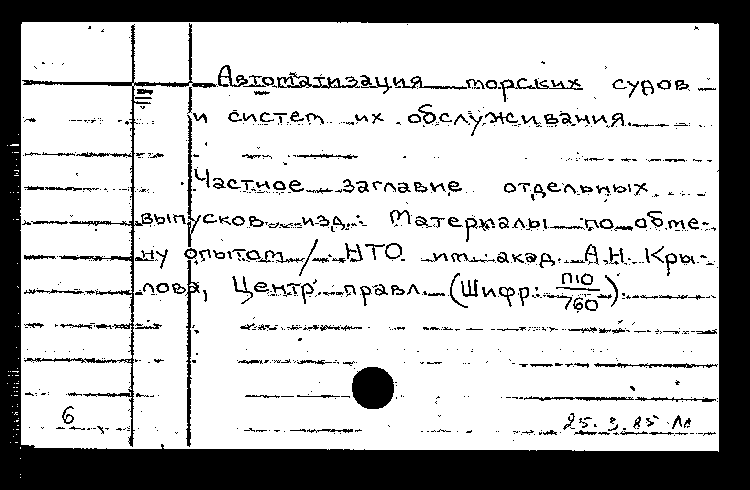 Автоматизация морских судов
и систем их обслуживания.
Частное заглавие отдельных
выпусков изд.: Материалы по обме-
ну опытом / НТО им. акад. А.Н. Кры-
лова, Центр. правл. (Шифр: П10/760).
6
25.3.85